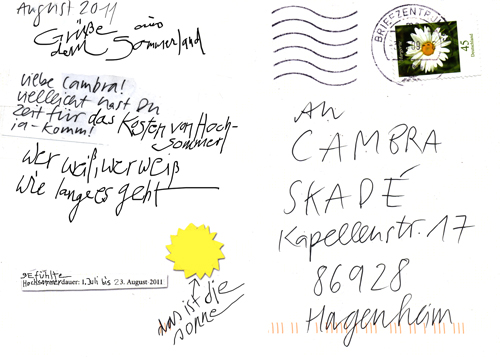 August 2011
Grüße aus
dem Sommerland
Liebe Cambra!
vielleicht hast Du
Zeit für das Kosten von Hoch-
sommer!
ja-komm!
Wer weiß, wer weiß
wie lange es geht
gefühlte
Hochsommerdauer: 1. Juli bis 23. August 2011
das ist die
sonne
BRIEFZENTRUM
45
Deutschland
An
CAMBRA
SKADÉ
Kapellenstr. 17
86928
Hagenheim